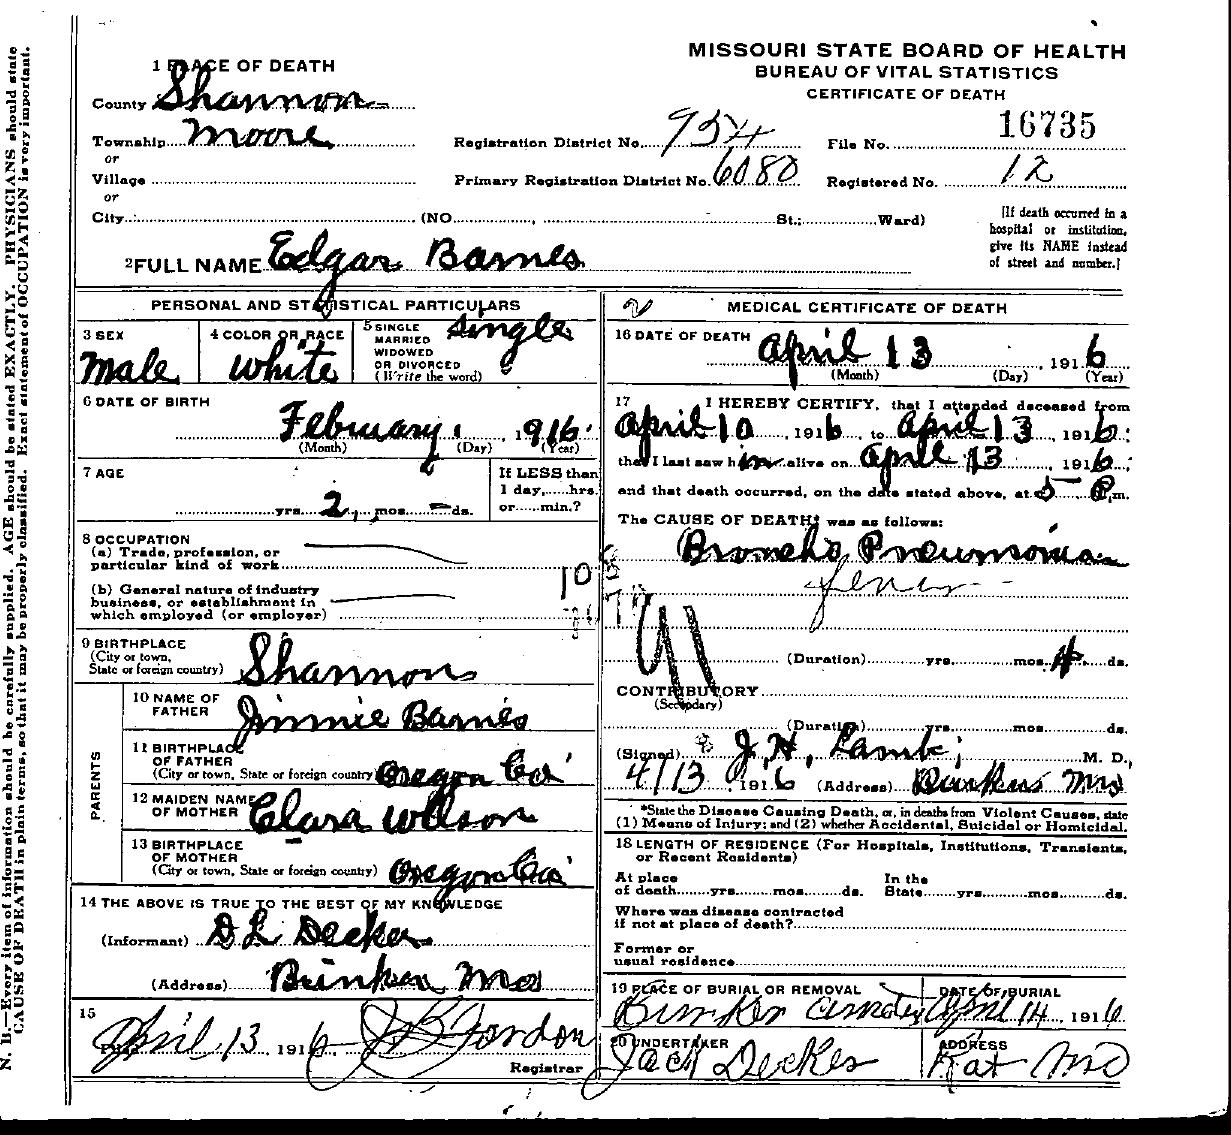 MISSOURI STATE BOARD OF HEALTH
BUREAU OF VITAL STATISTICS
CERTIFICATE OF DEATH
1 PLACE OF DEATH
County Shannon
Township Moore
or
Village
or
City (NO. , St.; Ward)
Registration District No. 954
File No. 16735
Primary Registration District No. 6080
Registered No. 12
[If death occurred in a
hospital or institution,
give its NAME instead
of street and number.]
2 FULL NAME Edgar Barnes
PERSONAL AND STATISTICAL PARTICULARS
3 SEX
Male
4 COLOR OR RACE
White
5 SINGLE
MARRIED
WIDOWED
OR DIVORCED
(Write the word)
Single
6 DATE OF BIRTH
February 1 1916
(Month) (Day) (Year)
7 AGE
yrs. 2 mos. – ds.
If LESS than
1 day,......hrs.
or......min.?
8 OCCUPATION
(a) Trade, profession, or
particular kind of work
(b) General nature of industry
business, or establishment in
which employed (or employer)
9 BIRTHPLACE
(City or town,
State or foreign country)
Shannon
PARENTS
10 NAME OF
FATHER
Jimmie Barnes
11 BIRTHPLACE
OF FATHER
(City or town, State or foreign country) Oregon Co
12 MAIDEN NAME
OF MOTHER
Clara Wilson
13 BIRTHPLACE
OF MOTHER
(City or town, State or foreign country) Oregon Co
14 THE ABOVE IS TRUE TO THE BEST OF MY KNOWLEDGE
(Informant) D L Decker
(Address) Mo
15
April 13, 1916
Registrar
MEDICAL CERTIFICATE OF DEATH
16 DATE OF DEATH
April 13, 1916
(Month) (Day) (Year)
17
I HEREBY CERTIFY, that I attended deceased from
April 10, 1916, to April 13, 1916,
that I last saw him alive on April 13, 1916,
and that death occurred, on the date stated above, at 5 P.m.
The CAUSE OF DEATH* was as follows:
Broncho Pneumonia
91
(Duration) yrs. mos. 4 ds.
CONTRIBUTORY
(Secondary)
(Duration) yrs. mos. ds.
(Signed) J. H. Lamb, M. D.
4/13, 1916 (Address) Mo
*State the Disease Causing Death, or, in deaths from Violent Causes, state
(1) Means of Injury; and (2) whether Accidental, Suicidal or Homicidal.
18 LENGTH OF RESIDENCE (For Hospitals, Institutions, Transients,
or Recent Residents)
At place
of death......yrs......mos......ds.
In the
State......yrs......mos......ds.
Where was disease contracted
if not at place of death?
Former or
usual residence
19 PLACE OF BURIAL OR REMOVAL
DATE OF BURIAL
April 14, 1916
20 UNDERTAKER
Jack Decker
ADDRESS
Kat Mo
N. B.—Every item of information should be carefully supplied. AGE should be stated EXACTLY. PHYSICIANS should state
CAUSE OF DEATH in plain terms, so that it may be properly classified. Exact statement of OCCUPATION is very important.